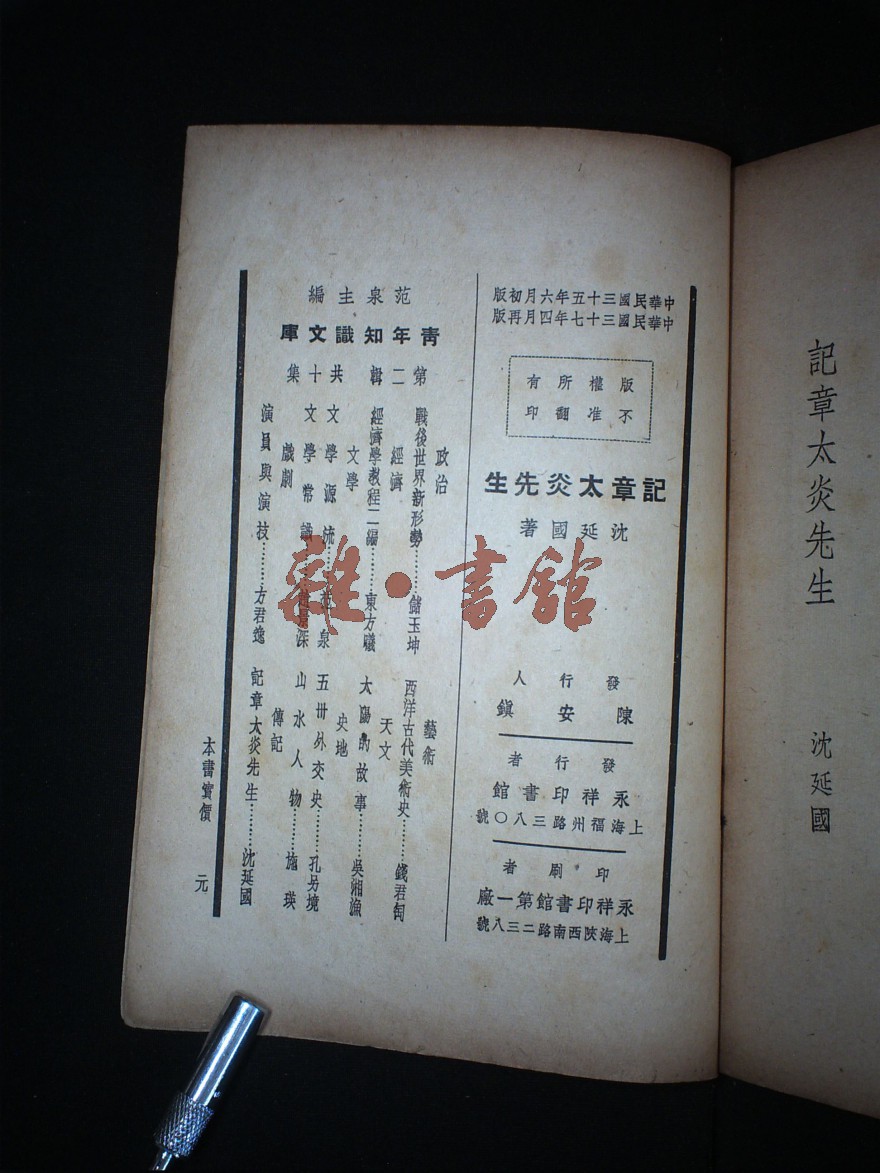 記章太炎先生
沈延國
中華民國三十五年六月初版
中華民國三十七年四月再版
版權所有
不准翻印
記章太炎先生
沈延國著
發行人
陳安鎭
發行者
永祥印書館
上海福州路三八〇號
印刷者
永祥印書館第一廠
上海陝西南路二三八號
范泉主編
青年知識文庫
第二輯 共十集
政治
戰後世界新形勢………儲玉坤
經濟
經濟學教程二編………東方曦
文學
文學源流………范泉
文學常識………趙景深
戲劇
演員與演技………方君逸
藝術
西洋古代美術史………錢君匋
天文
太陽的故事………吳湘漁
史地
五卅外交史………孔另境
山水人物………施瑛
傳記
記章太炎先生………沈延國
本書實價 元
雜·書館